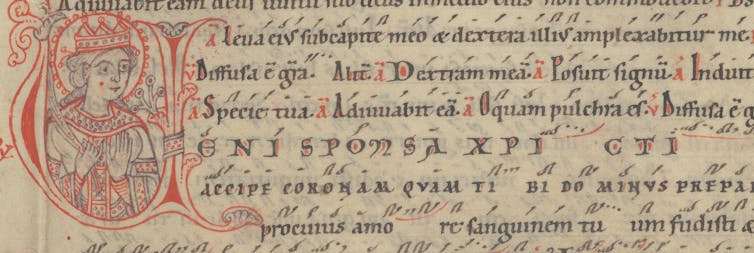 Adiuuabit eam deus uultu suo deus in medio eius non commouebitur
A Leua eius sub capite meo & dextera illius amplexabitur me.
V Diffusa ē gr̄a. Alit̄ A Dextram meā. A Posuit signū. A Induit
A Specie tua. A Adiuuabit eā. A O quam pulchra es. V Diffusa ē g
VENI SPONSA XPI CTI
ACCIPE CORONAM QUAM TI BI DOMINUS PREPA
pro cuius amo re sanguinem tu um fudisti &